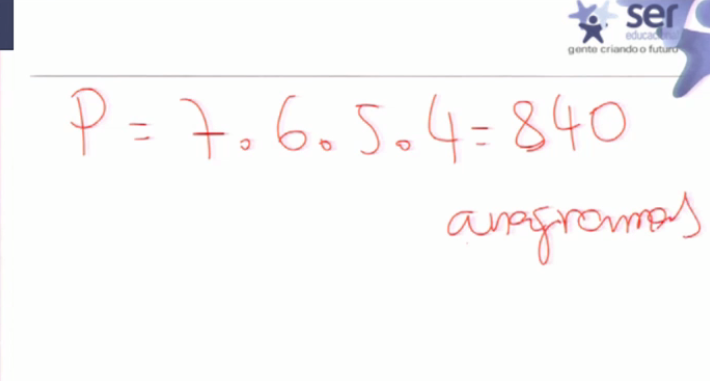 ser
educacional
gente criando o futuro
P = 7.6.5.4=840
anagramas